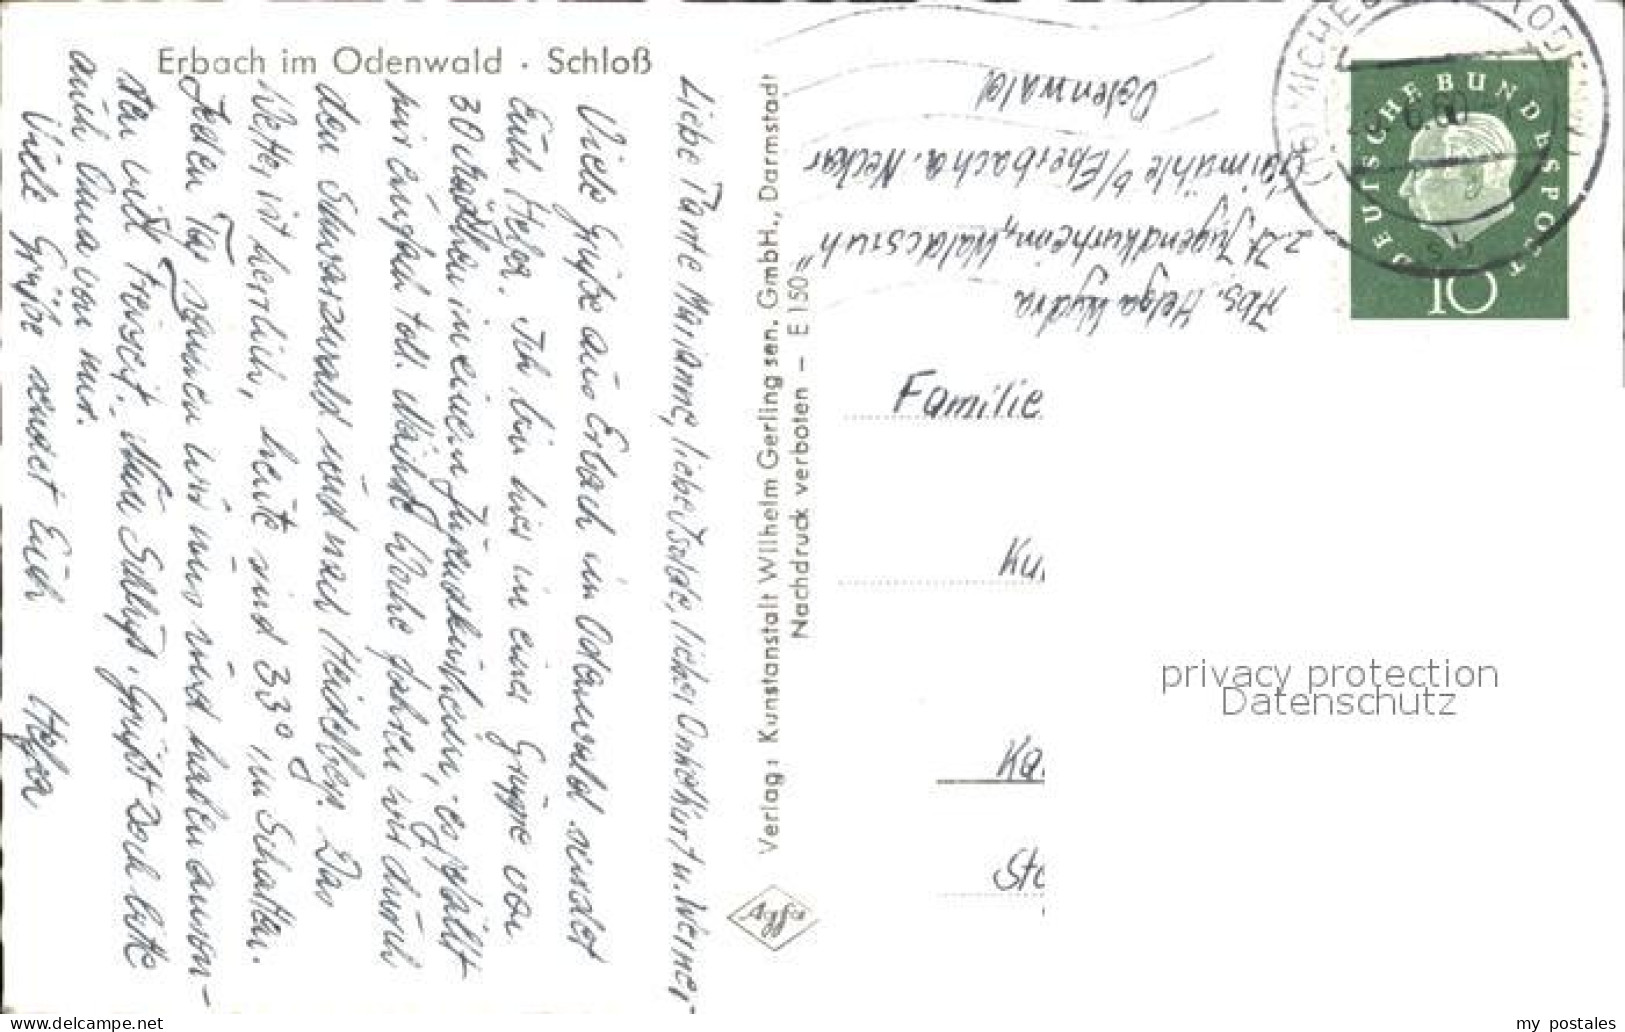 Erbach im Odenwald · Schloß
Liebe Tante Marianne, lieber Isolde, lieber Onkel Kurt u. Werner
Viele Grüße aus Erbach im Odenwald sendet
Euch Helga. Ich bin hier in einer Gruppe von
30 Mädchen in einem Jugendkurheim, es gefällt
mir einfach toll. Nächste Woche fahren wir durch
den Schwarzwald und nach Heidelberg. Das
Wetter ist herrlich, heute sind 33° im Schatten.
Jeden Tag sonnen wir uns und haben ausson-
sten viel Freizeit. Nun Schluß. Grüßt doch bitte
auch Oma von mir.
Viele Grüße sendet Euch Helga
Verlag: Kunstanstalt Wilhelm Gerling sen. GmbH., Darmstadt
Nachdruck verboten – E 150
Agfa
Abs. Helga Wydra
z.Zt. Jugendkurheim „Waldesruh"
Gaimühle b/Eberbach a. Neckar
Odenwald
DEUTSCHE BUNDESPOST
10
(16) MICHEL
6.60
sb
Familie
Ku
Ka
Sta
privacy protection
Datenschutz
www.delcampe.net
my_postales